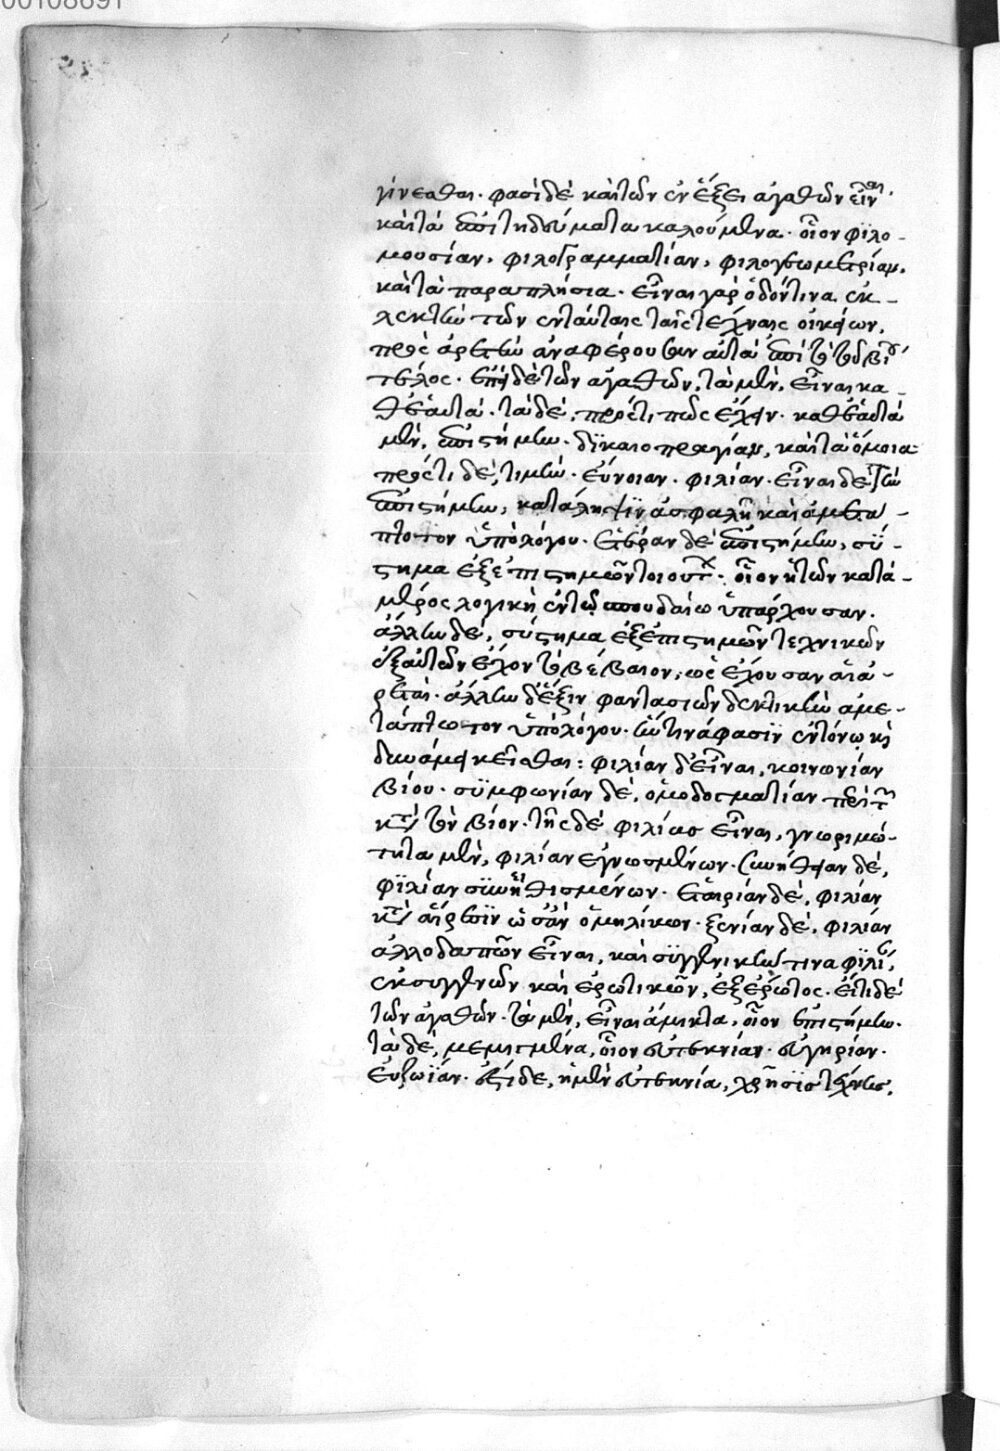 00108691
γίνεσθαι. φασὶ δὲ καὶ τῶν ἐν ἕξει ἀγαθῶν εἶναι
καὶ τὰ ἐπιτηδεύματα καλούμενα. οἷον φϊλο-
μουσίαν, φιλογραμματίαν, φιλογεωμετρίαν,
καὶ τὰ παραπλήσια. εἶναι γὰρ ὁδόν τινα ἐκ-
λεκτικὴν τῶν ἐν ταύταις ταῖς τέχναις οἰκείων,
πρὸς ἀρετὴν ἀναφέρουσαν αὐτὰ ἐπὶ τὸ τοῦ βίου
τέλος. ἔτι δὲ τῶν ἀγαθῶν, τὰ μὲν, εἶναι κα-
θ' ἑαυτά. τὰ δὲ, πρός τι πως ἔχειν. καθ' ἑαυτὰ
μὲν, ἐπιστήμην. δϊκαιοπραγίαν, καὶ τὰ ὅμοια
πρός τι δὲ, τιμὴν. εὔνοιαν. φιλίαν. εἶναι δὲ τὴν
ἐπιστήμην, κατάληψϊν ἀσφαλῆ καὶ ἀμετά-
πτοτον ὑπὸ λόγου. ἑτέραν δὲ ἐπιστήμην, σύ-
στημα ἐξ ἐπιστημῶν τοιούτων. οἷον ἡ τῶν κατὰ
μέρος λογικὴ ἐν τῷ σπουδαίω ὑπάρχουσαν.
ἄλλην δὲ, σύστημα ἐξ ἐπιστημῶν τεχνικῶν
ἐξ αὑτῶν ἔχον τὸ βέβαιον, ὡς ἔχουσαν αἱ ἀ-
ρεταὶ. ἄλλην δ' ἕξιν φαντασιῶν δεκτικὴν ἀμε-
τάπτωτον ὑπὸ λόγου. ἥν τινά φασϊν ἐν τόνῳ καὶ
δυνάμει κεῖσθαι: φιλίαν δ' εἶναι, κοινωνίαν
βίου. συμφωνίαν δὲ, ὁμοδογματίαν περὶ τῶν
κατὰ τὸν βίον. τῆς δὲ φιλίας εἶναι, γνωριμό-
τητα μὲν, φιλίαν ἐγνωσμένων. συνήθειαν δὲ,
φϊλίαν συνηθισμένων. ἑταιρίαν δὲ, φιλίαν
καθ' αἵρεσϊν ὡσὰν ὁμηλίκων. ξενίαν δὲ, φιλίαν
ἀλλοδαπῶν εἶναι, καὶ συγγενικήν τινα φϊλίαν,
ἐκ συγγενῶν καὶ ἐρωτικῶν, ἐξ ἔρωτος. ἔτι δὲ
τῶν ἀγαθῶν. τὰ μὲν, εἶναι ἄμικτα, οἷον ἐπιστήμην.
τὰ δὲ, μεμιγμένα, οἷον εὐτεκνίαν. εὐγηρίαν.
εὐζωΐαν. ἔστι δὲ, ἡ μὲν εὐτεκνία, χρῆσϊς τέκνοις,